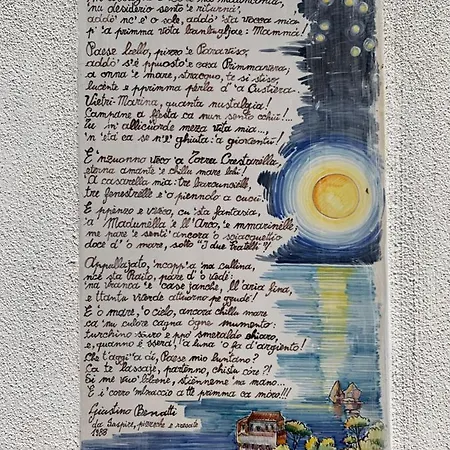 nu desiderio sento 'e riturnà,
addò nc' è o sole, addò sta vocca mia
p' 'a primma vota : Mammà!
Paese bello, pizzo 'e Paraviso,
addò s'è ppuosto 'e casa Primmavera,
a onna 'e mare, stracquo, te si stiso,
lucente e pprimma perla d' 'a Custiera-
Vietri-Marina, quanta nustalgia!
Campane a ffesta ca nun sento cchiù!...
tu m' allicuorde meza vita mia...,
n' 'età ca se n'è ghiuta: 'a gioventù!
E 'nzuonno veco 'a Torra Crestarella,
eterna amante 'e chillu mare llà!
'A casarella mia: tre
tre fenestrelle e 'o piennolo a cucì.
E ppenzo e veco, cu 'sta fantasia,
'a' Madunella e ll'Arco, 'e mmarinelle
me pare 'e sentì ancora 'o sciacquettio
doce d' 'o mare, sotto "I due Fratelli"!
Appullajato, 'ncopp' 'a na cullina,
nce sta Raito, pare d' 'o vedè:
'na vranca 'e case janche, ll'aria fina,
e ttanta vverde attuorno pe ggudè!
E 'o mare, 'o cielo, ancora chillu mare
ca nu culore cagna ogne mumento:
turchino scuro e ppo' smeraldo chiaro,
e, quanno è sserà, 'a luna 'o fa d'argiento!
Che t'aggi' 'a dì, Paese mio luntano?
Ca te lassaje, partenno, chistu core?!
Si me vuò bbene, stienneme 'na mano...
E i' corro 'mbraccio a tte primma ca moro!!!
Giustino Benatti
da Suspire, e resate
1988